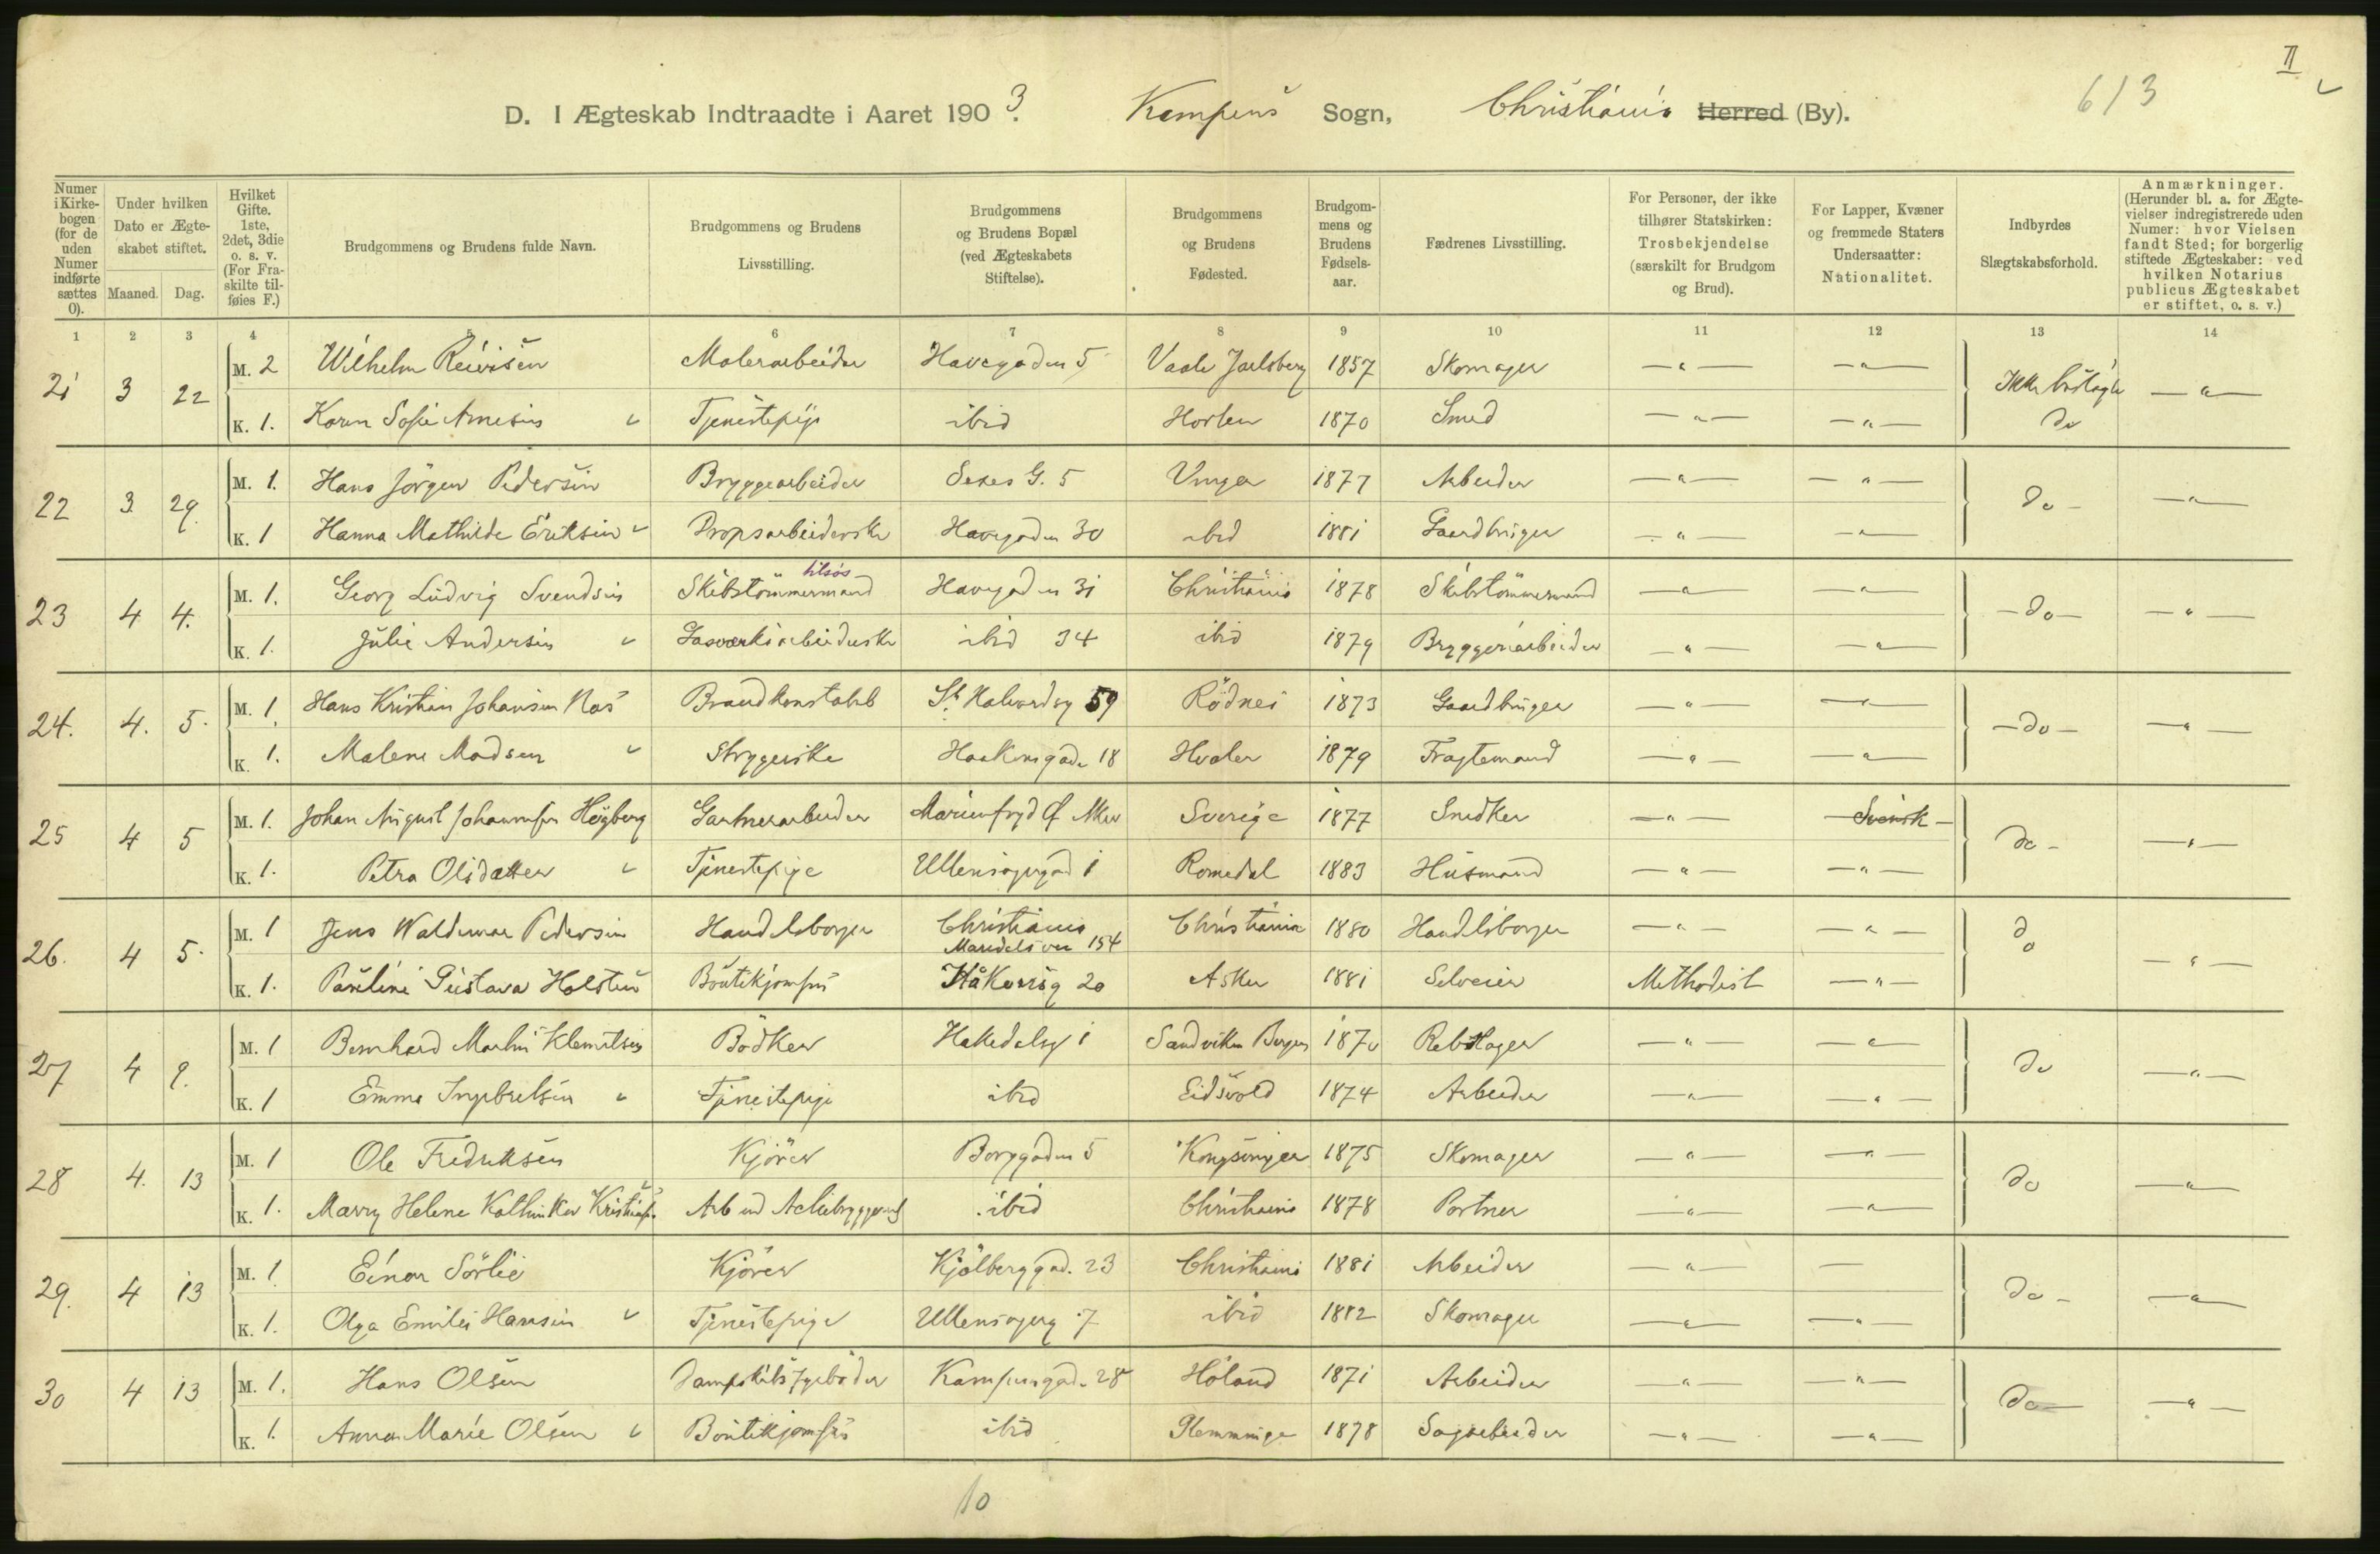 II
613
D. I Ægteskab Indtraadte i Aaret 1903. Kampens Sogn, Christiania Herred (By).
Numer i Kirkebogen (for de uden Numer indførte sættes 0).
Under hvilken Dato er Ægteskabet stiftet.
Maaned. Dag.
Hvilket Gifte. 1ste, 2det, 3die o. s. v. (For Fraskilte tilføies F.)
Brudgommens og Brudens fulde Navn.
Brudgommens og Brudens Livsstilling.
Brudgommens og Brudens Bopæl (ved Ægteskabets Stiftelse).
Brudgommens og Brudens Fødested.
Brudgommens og Brudens Fødselsaar.
Fædrenes Livsstilling.
For Personer, der ikke tilhører Statskirken: Trosbekjendelse (særskilt for Brudgom og Brud).
For Lapper, Kvæner og fremmede Staters Undersaatter: Nationalitet.
Indbyrdes Slægtskabsforhold.
Anmærkninger. (Herunder bl. a. for Ægtevielser indregistrerede uden Numer: hvor Vielsen fandt Sted; for borgerlig stiftede Ægteskaber: ved hvilken Notarius publicus Ægteskabet er stiftet, o. s. v.)
1 2 3 4 5 6 7 8 9 10 11 12 13 14
21 3 22 M. 2 Wilhelm Malerarbeider Havegaden 5 Vaale Jarlsberg 1857 Skomager — " — — " — Ikke beslægte — " —
K. 1. Karen Sofie Arnesen Tjenestepige ibid Horten 1870 Smed — " — — " — do
22 3. 29. M. 1. Hans Jörgen Pedersen Bryggearbeider Sexes G. 5 Vinger 1877 Arbeider — " — — " — do — — " —
K. 1 Hanna Mathilde Eriksen Propsarbeiderske Havegaden 30 ibid 1881 Gaardbruger — " — — " —
23 4 4. M. 1. Georg Ludvig Svendsen Skibstömmermand tilsøs Havegaden 31 Christiania 1878 Skibstömmermand — " — — " — — do — — " —
K. 1. Julie Andersen Gasværksarbeiderske ibid 34 ibid 1879 Bryggeriarbeider — " — — " —
24. 4. 5. M. 1. Hans Kristian Johansen Nas Brandkonstabel St. Halvardsg 59 Rödnes 1873 Gaardbruger — " — — " — — do — — " —
K. 1. Malene Madsen Strygerske Haakonsgade 18 Hvaler 1879 Fragtemand — " — — " —
25 4 5 M. 1. Johan August Johannesen Högberg Gartnerarbeider Marienfryd Ø Aker Sverige 1877 Snedker — " — Svensk do — — " —
K. 1. Petra Olsdatter Tjenestepige Ullensagergad 1 Romedal 1883 Husmand — " — — " —
26. 4 5. M. 1 Jens Waldemar Pedersen Handelsborger Christiania Maridalsvei 154 Christiania 1880 Handelsborger — " — — " — do — " —
K. 1. Pauline Gustava Holsten Boutikjomfru Håkonsg 20 Asker 1881 Selveier Methodist — " —
27 4 9. M. 1 Bernhard Martin Klemetsen Bödker Hakedalsg 1 Sandviken Bergen 1870 Rebslager — " — — " — do — " —
K. 1 Emma Ingebretsen Tjenestepige ibid Eidsvold 1874 Arbeider — " — — " —
28 4. 13 M. 1 Ole Fredriksen Kjörer Borggaden 5 Kongsvinger 1875 Skomager — " — — " — do — " —
K. 1. Marry Helene Kathinka Kristians. Arb ved Actiebryggeriet ibid Christiania 1878 Portner — " — — " —
29. 4 13 M. 1 Einar Sörlie Kjörer Kjölberggad. 23 Christiania 1881 Arbeider — " — — do — — " —
K. 1. Olga Emilie Hansen Tjenestepige Ullensagerg 7 ibid 1882 Skomager — " — — " —
30 4 13 M. 1. Hans Olsen Dampskibsfyrböder Kampensgad. 28 Höland 1871 Arbeider — " — — " — do — — " —
K. 1. Anna Marie Olsen Boutikjomfru ibid Glemminge 1878 Sagarbeider — " — — " —
10